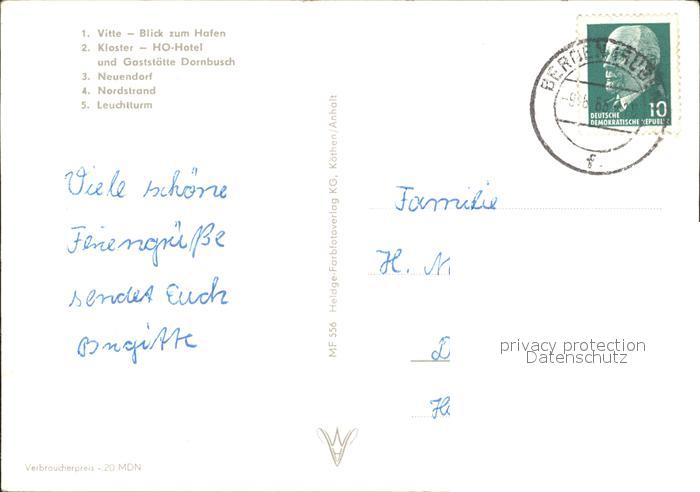 1. Vitte – Blick zum Hafen
2. Kloster – HO-Hotel
und Gaststätte Dornbusch
3. Neuendorf
4. Nordstrand
5. Leuchtturm
Viele schöne
Feriengrüße
sendet Euch
Brigitte
Verbraucherpreis -.20 MDN
MF 556 Heldge-Farbfotoverlag KG, Köthen/Anhalt
BERGEN
10
DEUTSCHE
DEMOKRATISCHE REPUBLIK
Familie
H. N
D
He
privacy protection
Datenschutz